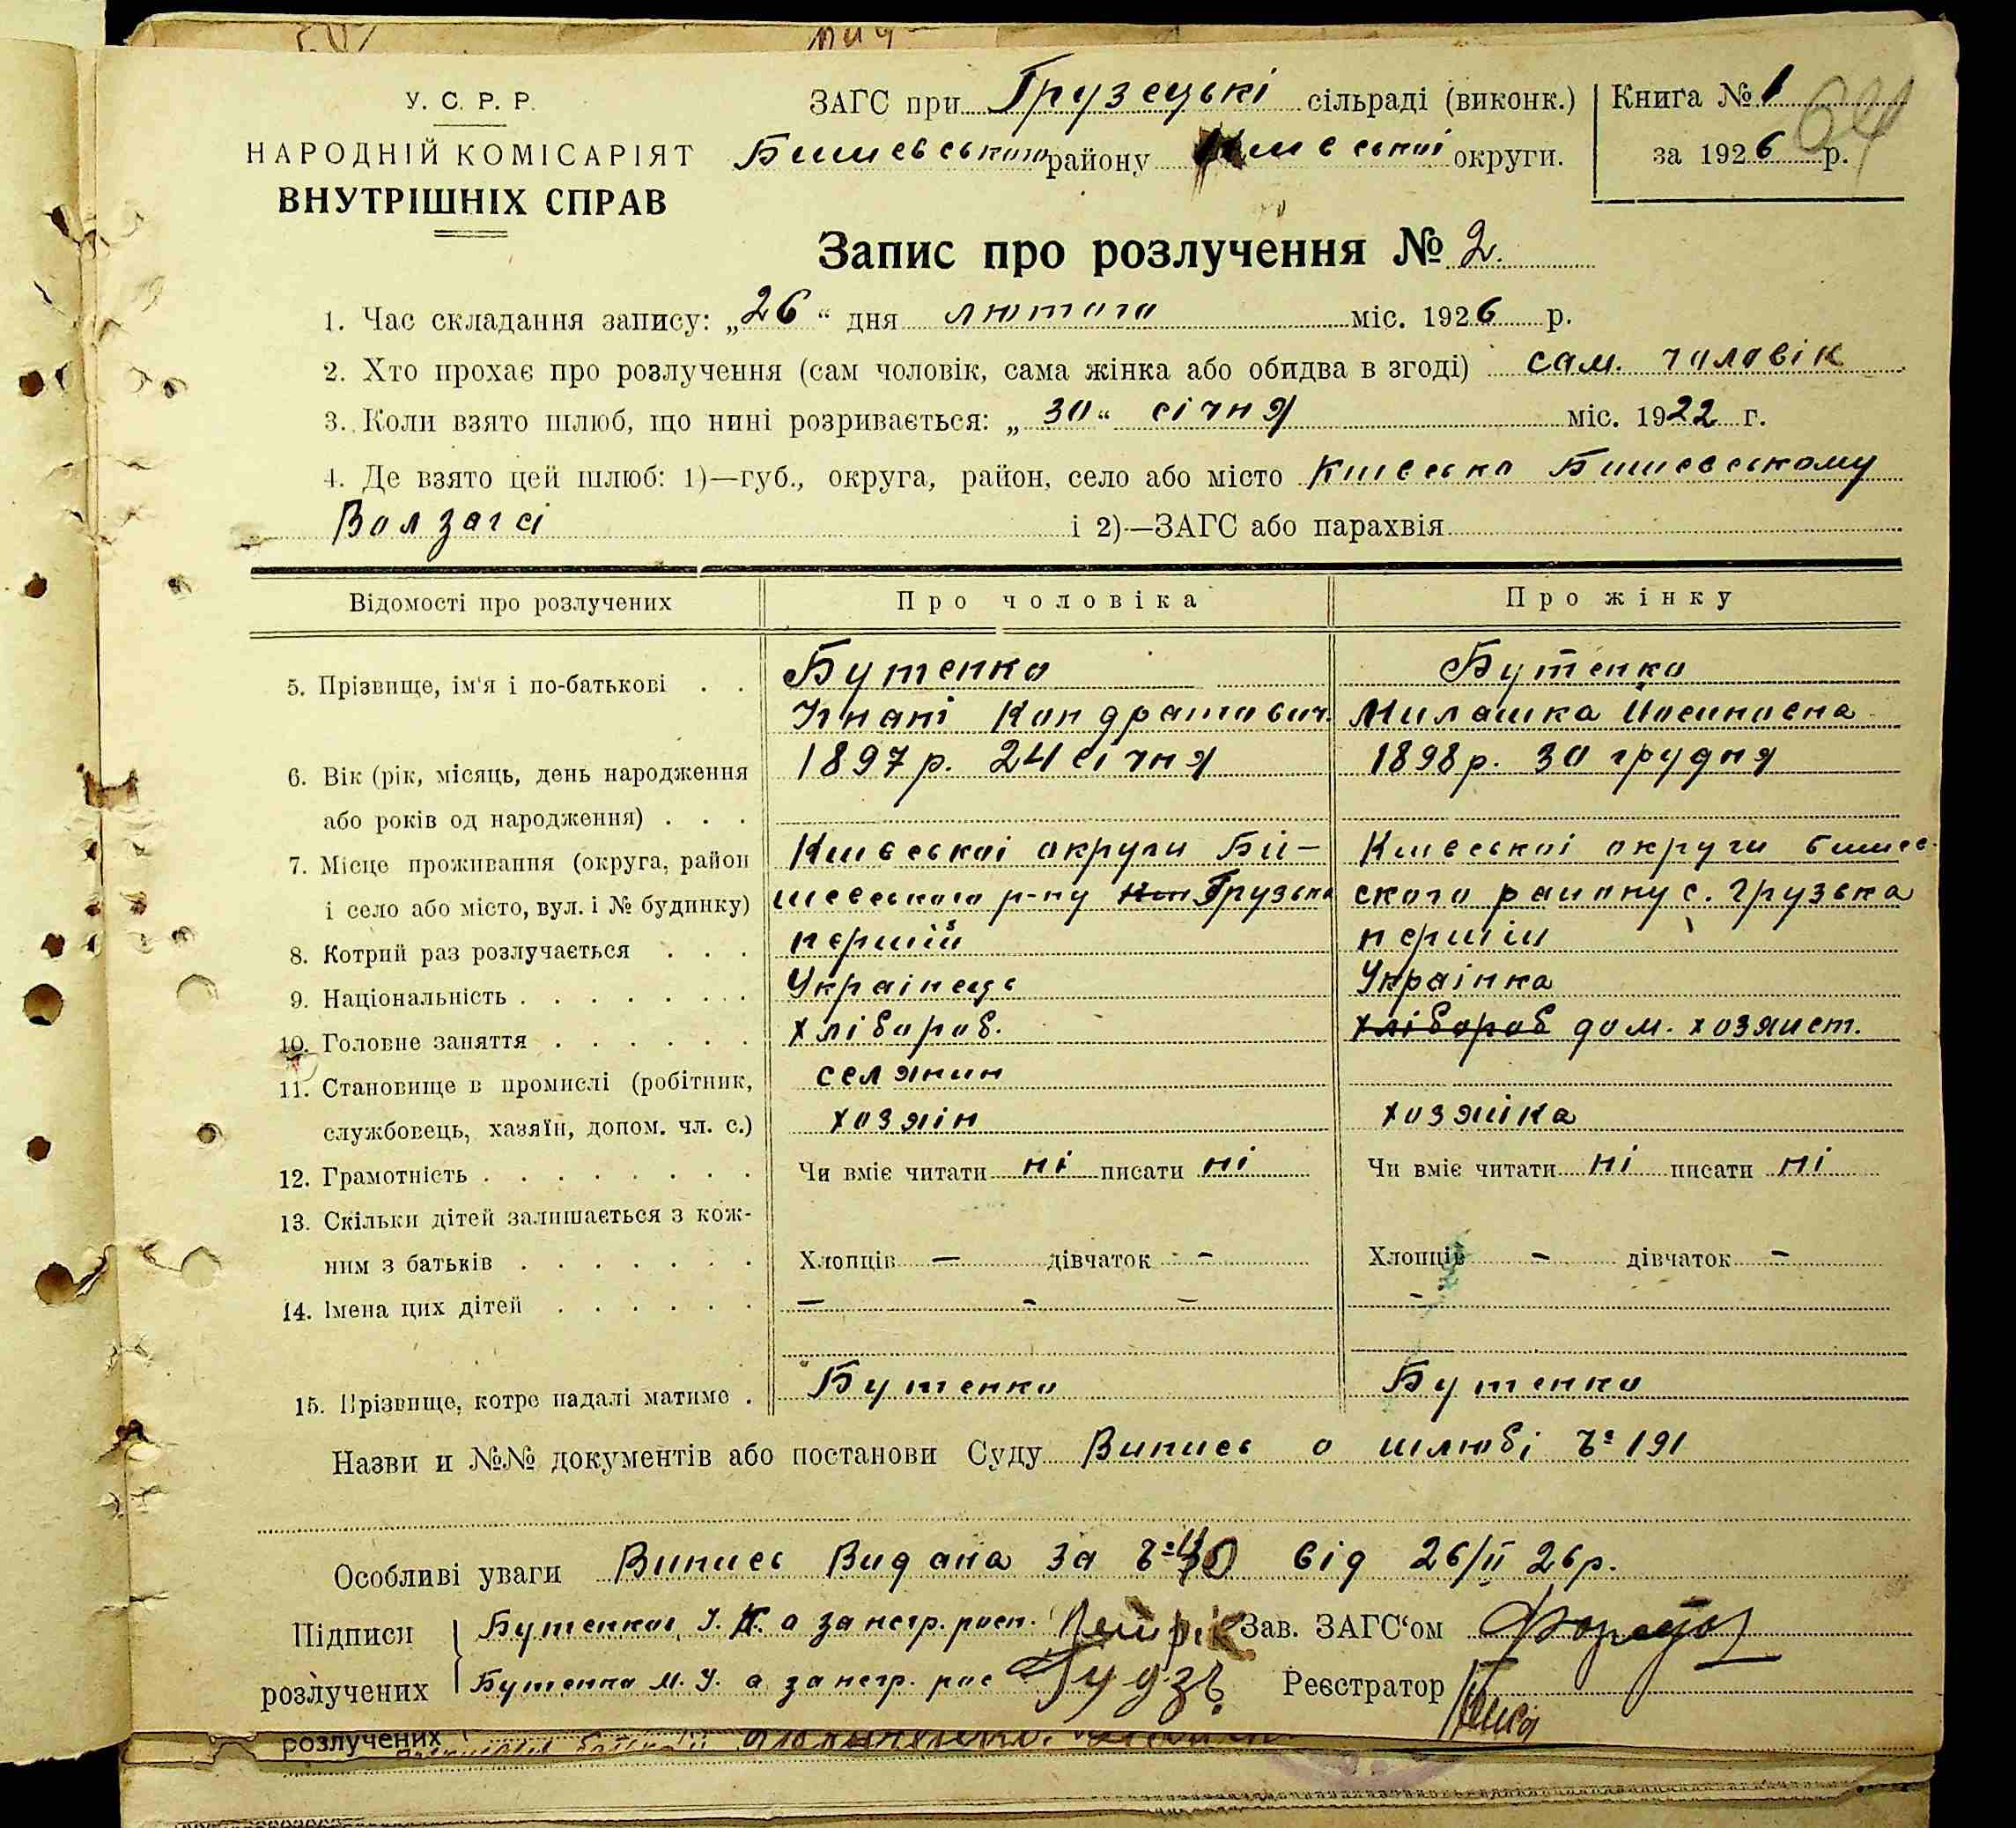 У. С. Р. Р.
НАРОДНІЙ КОМІСАРІЯТ
ВНУТРІШНІХ СПРАВ
ЗАГС при Грузецькі сільраді (виконк.)
Бишевського району Киевскоі округи.
Книга № 1
за 1926 р.
64
Запис про розлучення № 2.
1. Час складання запису: „26“ дня лютого міс. 1926 р.
2. Хто прохає про розлучення (сам чоловік, сама жінка або обидва в згоді) сам. чоловік
3. Коли взято шлюб, що нині розривається: „30“ січня міс. 1922 г.
4. Де взято цей шлюб: 1)—губ., округа, район, село або місто Бишевському
Волзагсі і 2)—ЗАГС або парахвія
Відомості про розлучених Про чоловіка Про жінку
5. Прізвище, ім'я і по-батькові . . Бутенко Бутенко
Ігнат Кондратович. Милашка Йосиповна
6. Вік (рік, місяць, день народження 1897 р. 24 січня 1898 р. 30 грудня
або років од народження) . . .
7. Місце проживання (округа, район Киівськоі округи Би- Киівськоі округи Бишев-
і село або місто, вул. і № будинку) шевського р-ну Грузька ского раиону с. Грузька
8. Котрий раз розлучається . . . першій першій
9. Національність . . . . . . . Украінець Украінка
10. Головне заняття . . . . . . хлібороб. хлібороб дом. хозяист.
11. Становище в промислі (робітник, селянин
службовець, хазяїн, допом. чл. с.) хозяін хозяіка
12. Грамотність . . . . . . . . Чи вміє читати ні писати ні Чи вміє читати ні писати ні
13. Скільки дітей залишається з кож-
ним з батьків . . . . . . . Хлопців — дівчаток - Хлопців - дівчаток -
14. Імена цих дітей . . . . . . — - - -
15. Прізвище, котре надалі матиме . Бутенко Бутенко
Назви и №№ документів або постанови Суду Випись о шлюбі № 191
Особливі уваги Випись Видана за № від 26/II 26 р.
Підписи Бутенко, І. К. а за негр. росп. Зав. ЗАГС‘ом
розлучених Бутенко М. Й. а за негр. рос Гудзь Реєстратор
розлучених